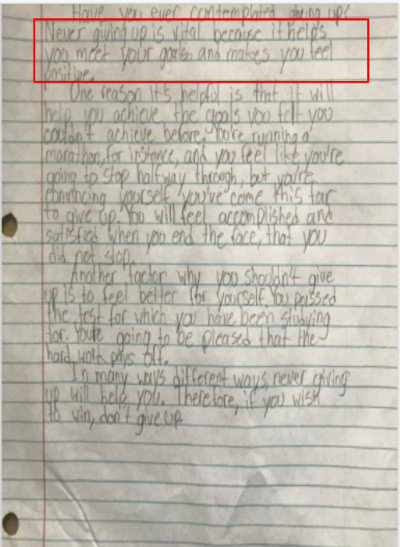 Have you ever contemplated giving up?
Never giving up is vital because it helps
you meet your goals and makes you feel
positive.
One reason it's helpful is that it will
help you achieve the goals you felt you
couldn't achieve before. You're running a
marathon, for instance, and you feel like you're
going to stop halfway through, but you're
convincing yourself you've come this far
to give up. You will feel accomplished and
satisfied when you end the race, that you
did not stop.
Another factor why you shouldn't give
up is to feel better for yourself. You passed
the test for which you have been studying
for. You're going to be pleased that the
hard work pays off.
In many ways different ways, never giving
up will help you. Therefore, if you wish
to win, don't give up.